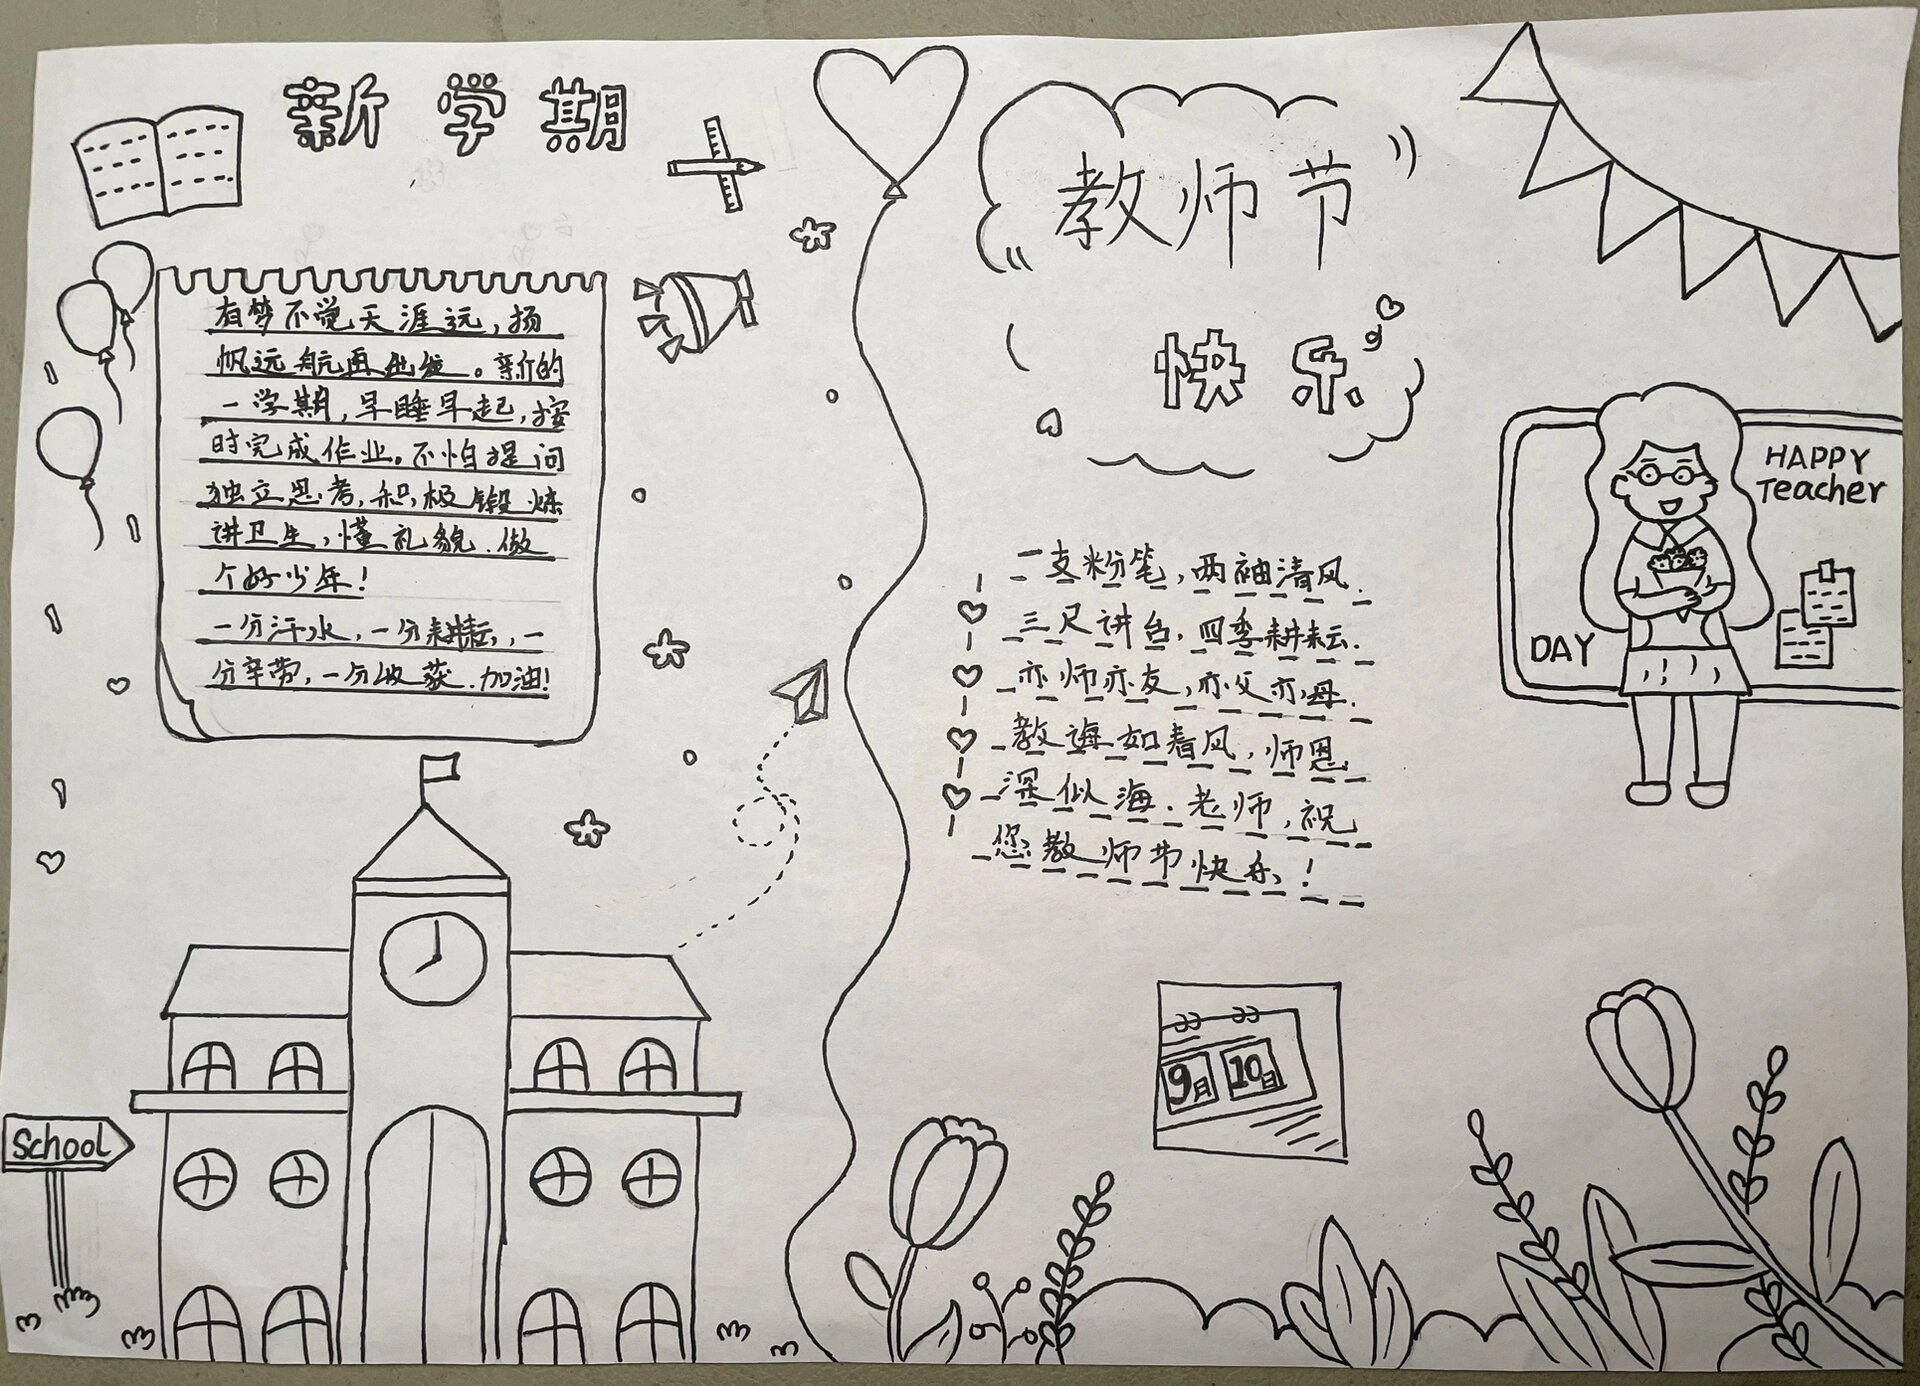 新学期
有梦不觉天涯远,扬
帆远航再出发。新的
一学期,早睡早起,按
时完成作业。不怕提问
独立思考,积极锻炼
讲卫生,懂礼貌.做
个好少年!
一分汗水,一分耕耘,一
分辛劳,一分收获.加油!
School
教师节
快乐
一支粉笔,两袖清风.
三尺讲台,四季耕耘.
亦师亦友,亦父亦母.
教诲如春风,师恩
深似海.老师,祝
您教师节快乐!
HAPPY
Teacher
DAY
9月 10日